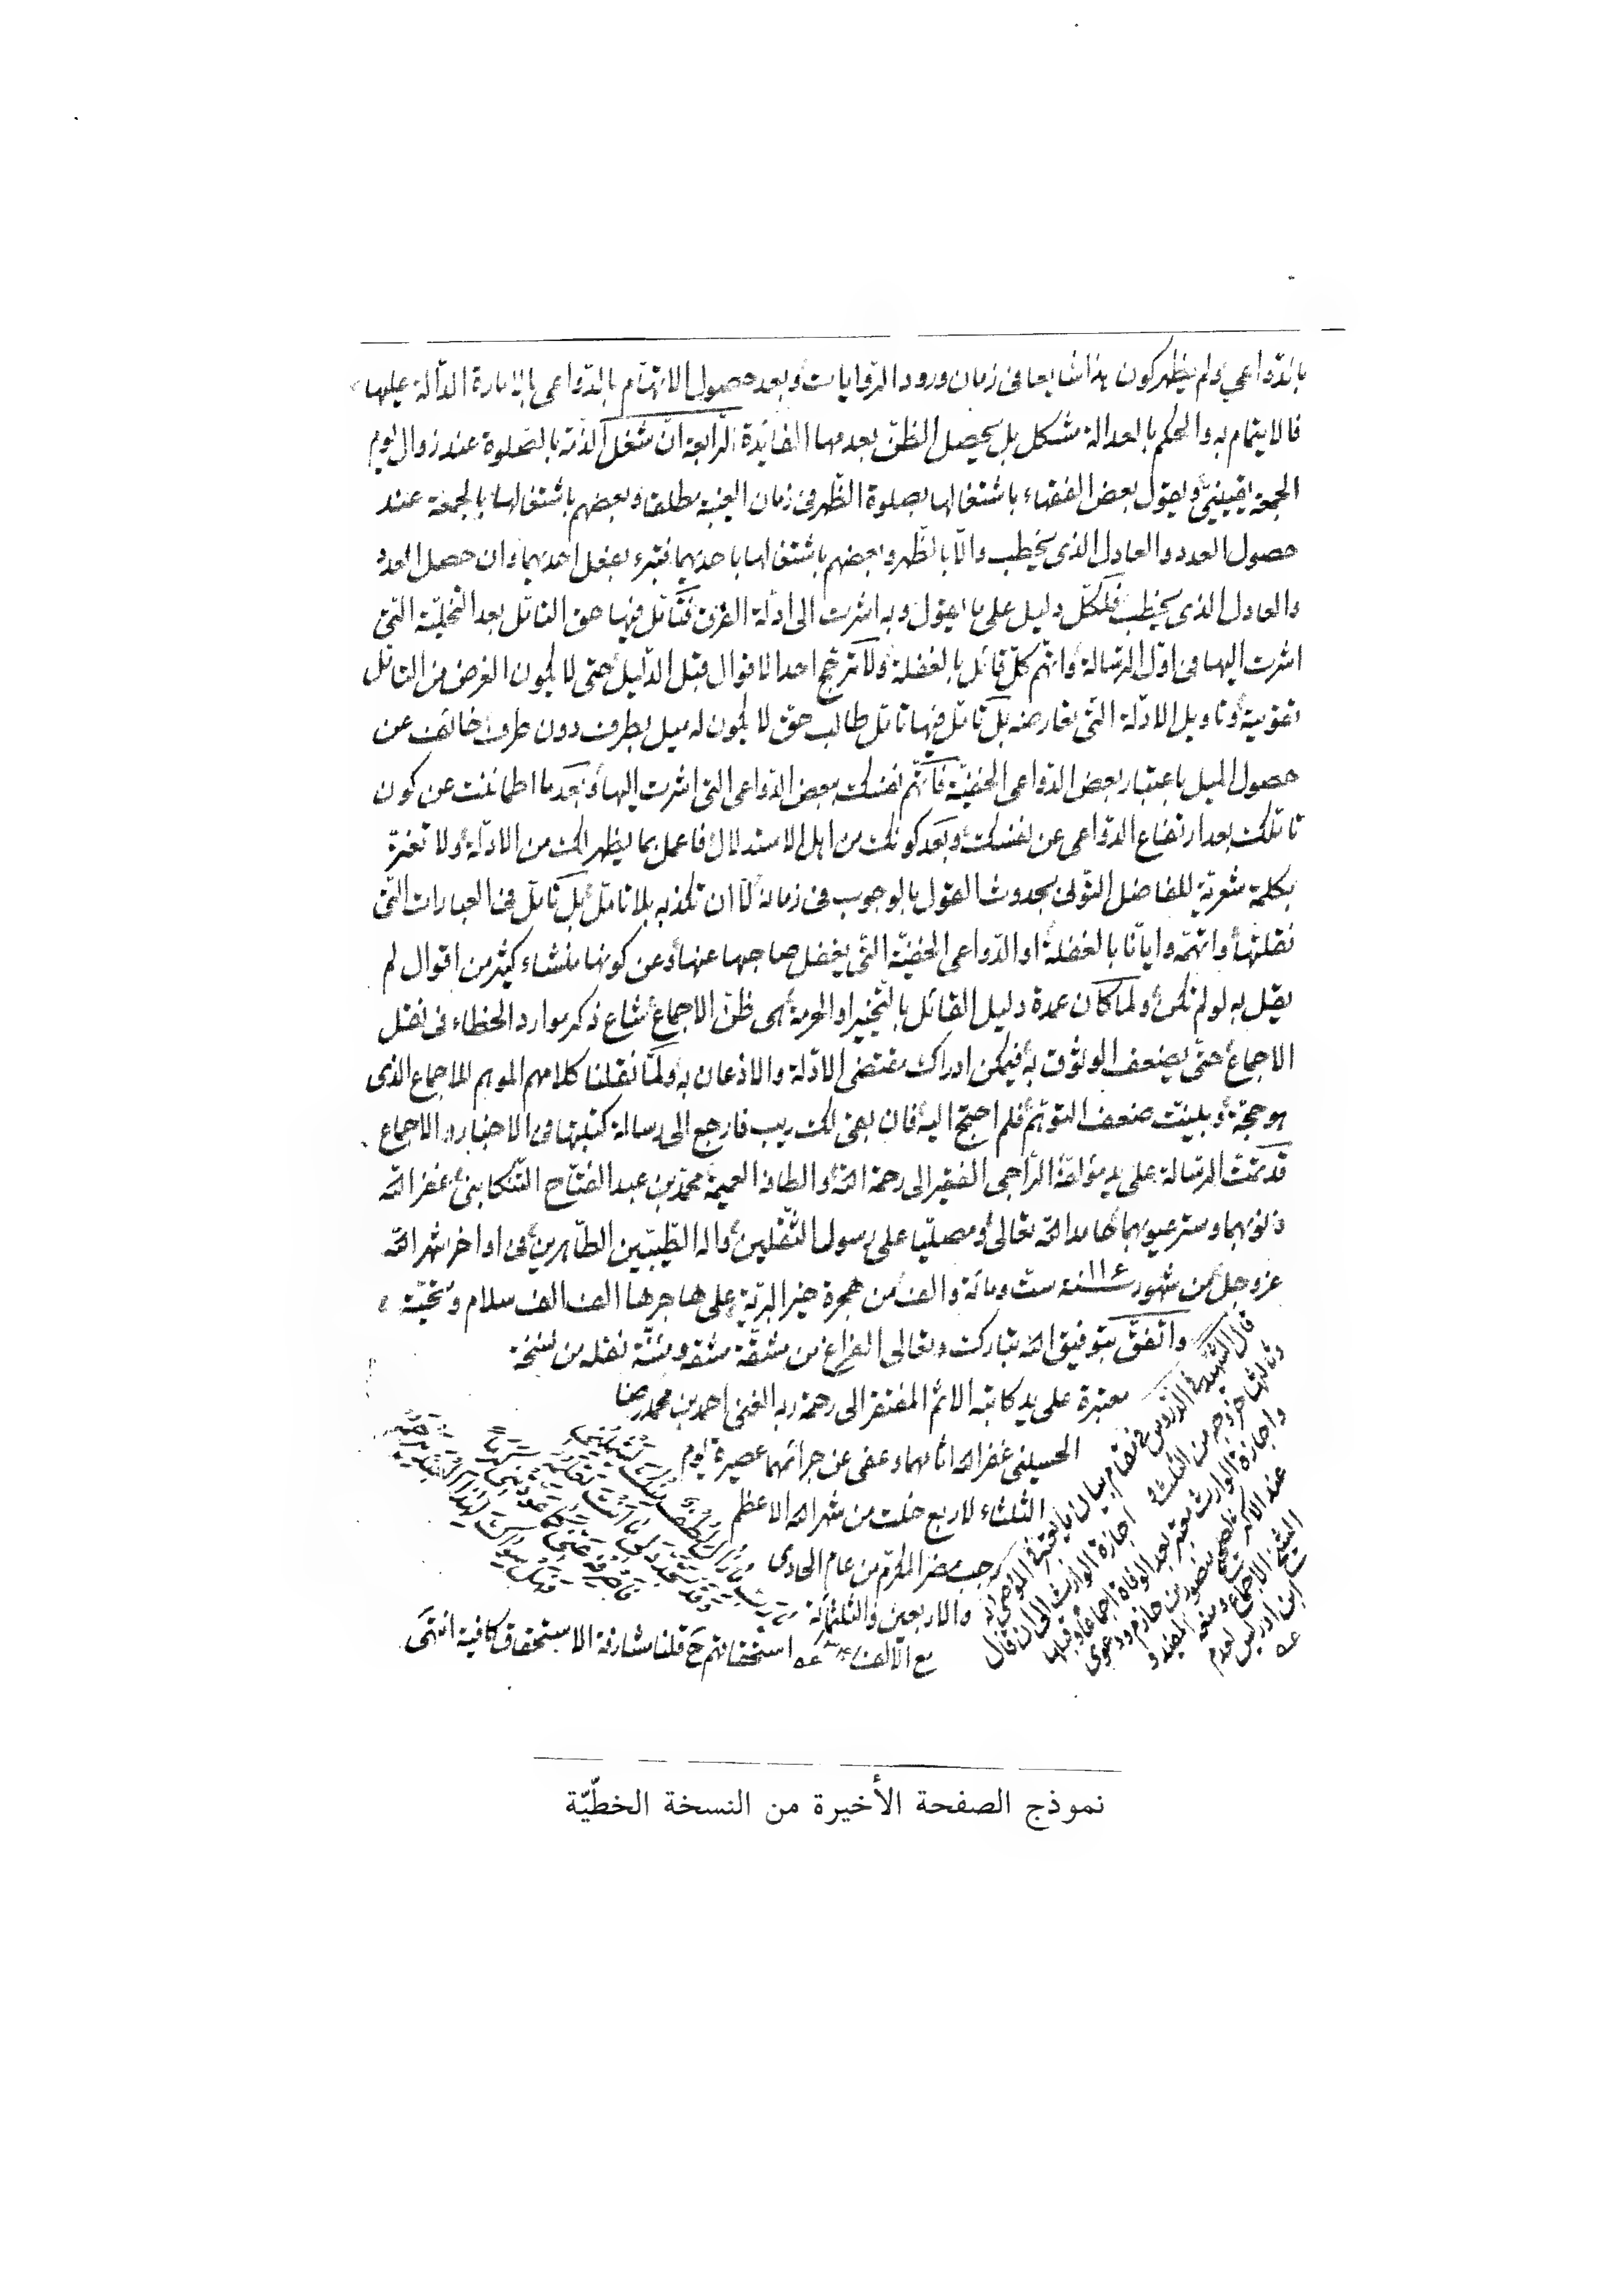 بالدّواعي ولم يظهر كون هذا شايعا فى زمان ورود الروايات وبعد حصول الاتهام بالدّواعى بالامارة الدّالة عليها
فالايتمام به والحكم بالعدالة مشكل بل يحصل الظنّ بعدمها الفائدة الرّابعة انّ شغل الذمّة بالصّلوة عند زوال يوم
الجمعة يقينيّ ويقول بعض الفقهاء باشتغالها بصلوة الظّهر فى زمان الغيبة مطلقا وبعضهم باشتغالها بالجمعة عند
حصول العدد والعادل الذى يخطب والّا بالظّهر وبعضهم باشتغالها باحديهما فتبرء بفعل احديهما وان حصل العدد
والعادل الذى يخطب فلكلّ دليل على ما يقول وبه اشرت الى ادلّة الفرق فتأمّل فيها حق التامّل بعد التخلية التّى
اشرت اليها فى اوّل الرسالة واتّهم كلّ قائل بالغفلة ولا ترجّح احد الاقوال قبل الدّليل حتى لا يكون الغرض من التامّل
تقويته وتاويل الادلّة التّى تعارضه بل تامّل فيها تامّل طالب حق لا يكون له ميل بطرف دون طرف خائف عن
حصول الميل باعتبار بعض الدّواعى الخفيّة فاتّهم نفسك ببعض الدّواعى التى اشرت اليها وبعد ما اطماننت عن كون
تامّلك بعد ارتفاع الدّواعى عن نفسك وبعد كونك من اهل الاستدلال فاعمل بما يظهر لك من الادلّة ولا تغترّ
بكلمة شعريّة للفاضل التّونى بحدوث القول بالوجوب فى زمانه لا ان تكذبه بلا تامّل بل تامّل فى العبارات التّى
نقلتها واتهمّه وايانا بالغفلة او الدّواعى الخفيّة التّى يغفل صاحبها عنها وعن كونها منشاء كثير من اقوال لم
يقل به لو لم تكن ولما كان عمدة دليل القائل بالتّخيير او الحرمة هى ظنّ الاجماع شاع ذكر موارد الخطاء فى نقل
الاجماع حتّى يضعف الوثوق به فيمكن ادراك مقتضى الادلّة والاذعان به ولمّا نقلنا كلامهم الموهم للاجماع الذى
هو حجّة وبيّنت ضعف التوهّم فلم احتج اليه فان بقى لك ريب فارجع الى رسالة كتبتها فى الاخبار والاجماع
قد تمّت الرسالة على يد مؤلفه الرّاجى الفقير الى رحمة الله والطافه العميمة محمّد بن عبد الفتّاح التّنكابنى غفر الله
ذنوبهما وستر عيوبهما حامدا لله تعالى ومصليّا على رسول الثّقلين واله الطّيبّين الطّاهرين فى اواخر شهر الله
عزوجل من شهور سنة ١١٠٦ ستّ ومائة والف من هجرة خير البريّة على هاجرها الف الف سلام وتحيّة
واتّفق بتوفيق الله تبارك وتعالى الفراغ من مشقّة مشقه ونقله من نسخة
معتبرة على يد كاتبه الاثم المفتقر الى رحمة ربه الغنى احمد بن محمد رضا
الحسينى غفر الله اثامهما وعفى عن جرائمهما عصيرة يوم
الثلثاء لاربع خلت من شهر الله الاعظم
رجب مضر المكرّم من عام الحادى
والاربعين والثلثمائة
مع الالف
قال الشهيد فى الدّروس فى مقام بيان ما يعتبر فى الموصى به
وثالثها خروجه من الثلث او اجازة الوارث الى ان قال
واجازة الوارث يعتبر بعد الوفاة اجماعا وقبلها
منصور بن حازم ودعوى
الشيخ الاجماع ومنعه المفيد و
ابن ادريس لعدم
استحقاقهم ح قلنا مشارفة الاستحقاق كافية انتهى
نموذج الصفحة الأخيرة من النسخة الخطّيّة